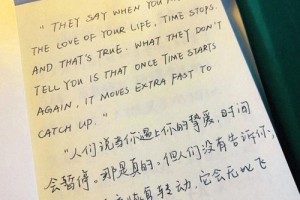 "THEY SAY WHEN YOU
THE LOVE OF YOUR LIFE, TIME STOPS.
AND THAT'S TRUE. WHAT THEY DON'T
TELL YOU IS THAT ONCE TIME STARTS
AGAIN, IT MOVES EXTRA FAST TO
CATCH UP."
"人们说当你遇上你的挚爱,时间
会暂停。那是真的。但人们没有告诉你:
转动,它会无比飞